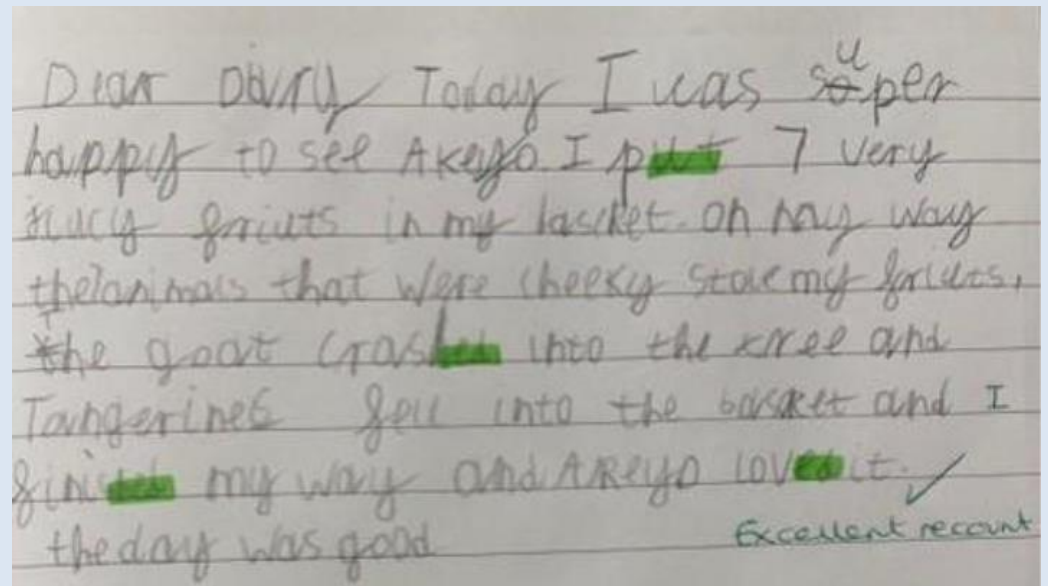 Dear Dairy Today I was super
happy to see Akeyo. I put 7 very
friuts in my bascket. on my way
the animals that were cheeky stole my friuts,
the goat crashed into the tree and
Tangerines fell into the basket and I
my way and Akeyo loved it.
the day was good
Excellent recount